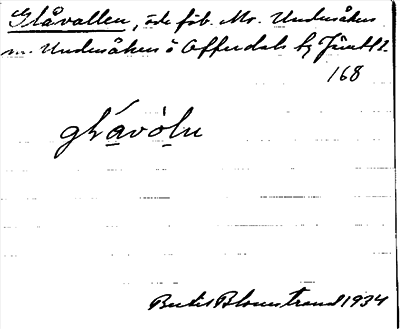 Glåvallen, öde fäb. Mr. Undersåkers
m. Undersåkers o Offerdals tg Jämtl.
168
glåvòln
Bertil Blomstrand 1934